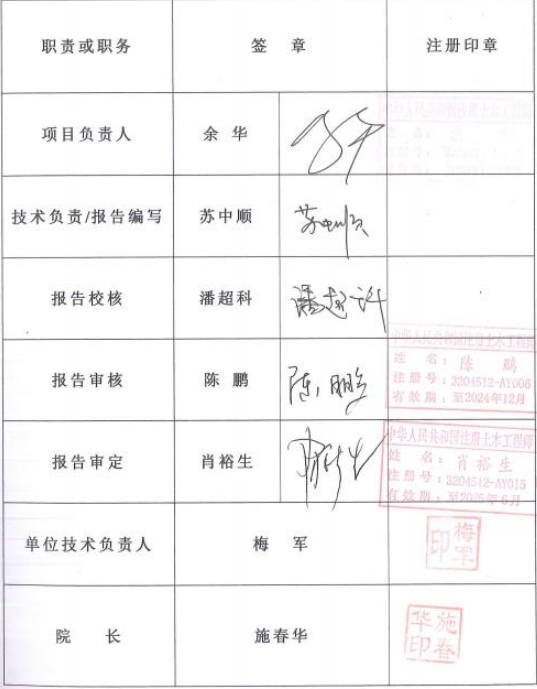 职责或职务 签 章 注册印章
项目负责人 余 华
技术负责/报告编写 苏中顺 苏中顺
报告校核 潘超科 潘超科
中华人民共和国注册土木工程师
姓 名：陈 鹏
报告审核 陈 鹏 陈鹏 注册号：3204512-AY006
有效期：至2024年12月
中华人民共和国注册土木工程师
姓 名：肖裕生
报告审定 肖裕生 肖裕生 注册号：3204512-AY015
有效期：至2025年6月
单位技术负责人 梅 军 梅军印
院 长 施春华 施春华印